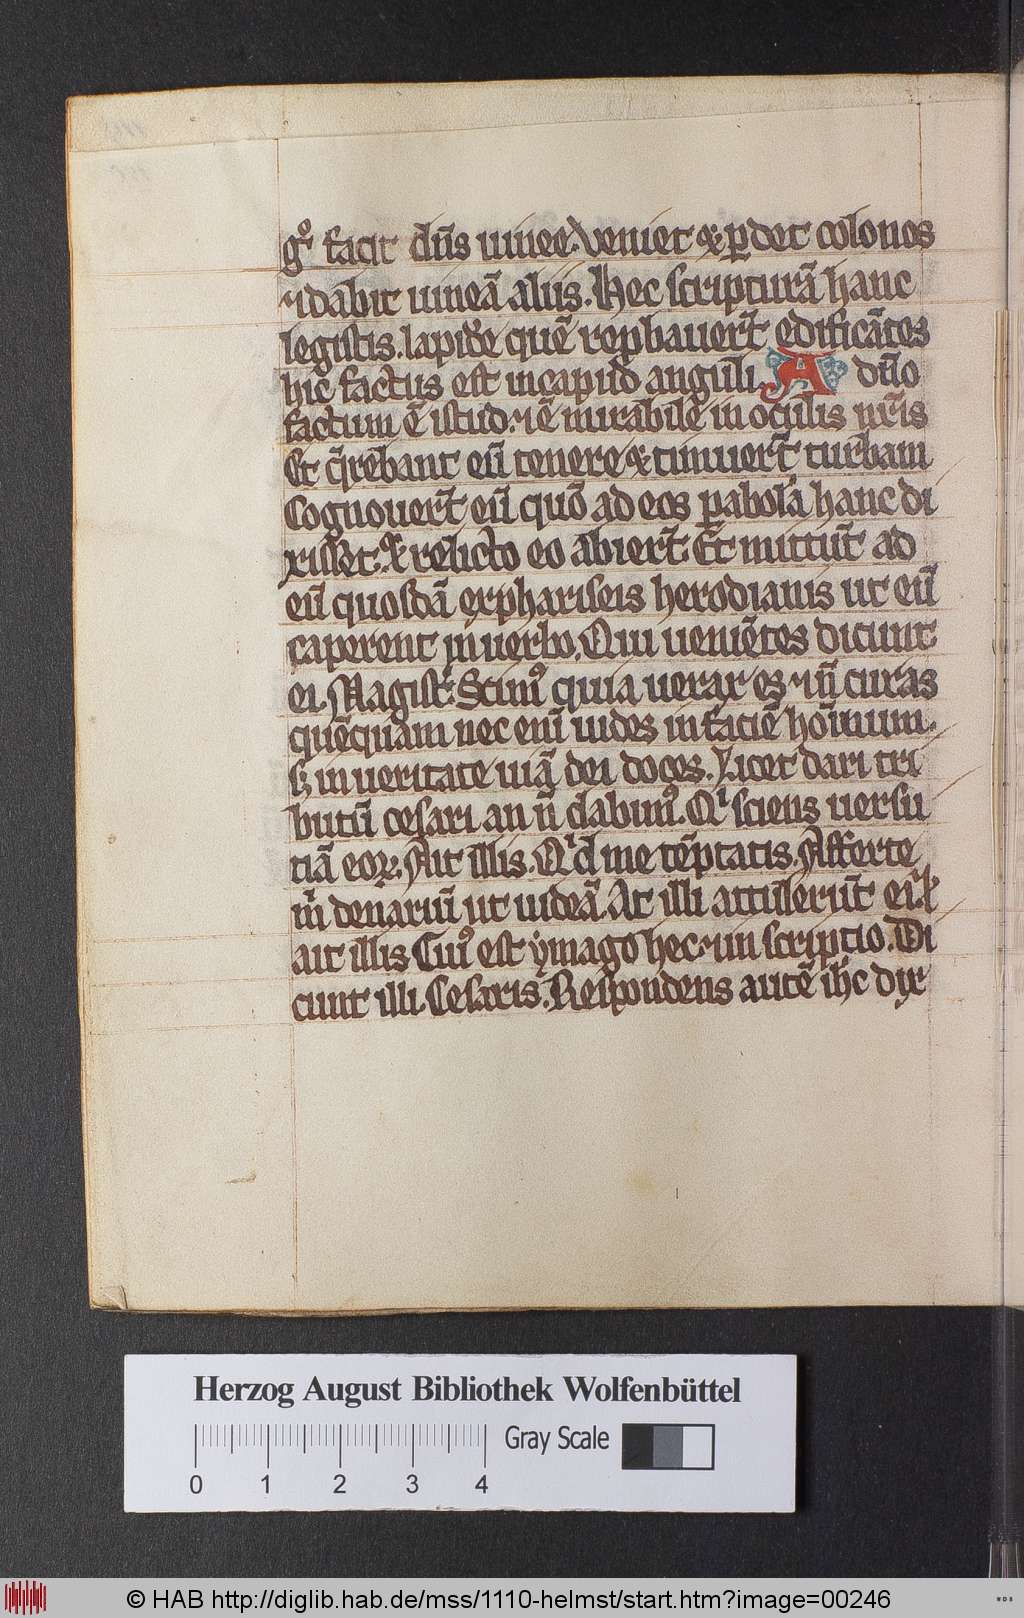 gͦ facit dn̄s uinee. Veniet ⁊ ꝑdet colonos
⁊ dabit uineā aliis. Hec scripturā hanc
legistis. lapidē quē reꝓbauer̄t edificātes
hic factus est in capud anguli. A dn̄o
factum ē istud. ⁊ ē mirabile in oculis nr̄is
Et q̄rebant eū tenere ⁊ timuer̄t turbam
Cognouer̄t eū quō ad eos ꝑabolā hanc di
xisset. ⁊ relicto eo abier̄t. Et mittūt ad
eū quosdā ex phariseis herodianis ut eū
caperent in uerbo. Qui ueniētes dicunt
ei. Magist̄. Scimꝰ quia uerax es ⁊ n̄ curas
quēquam nec enī uides in faciē hoīnum.
sꝫ in ueritate uiā dei doces. Licet dari tri
butū cesari an n̄ dabimꝰ. Qͥ sciens uersu
tiā eoꝝ. Ait illis. Qͥd me tēptatis. Afferte
m̄ denariū ut uideā. At illi attulerūt ei. ⁊
ait illis Cuiꝰ est ymago hec ⁊ in scriptio. Di
cunt illi. Cesaris. Respondens autē ih̄c dix
Herzog August Bibliothek Wolfenbüttel
Gray Scale
0 1 2 3 4
© HAB http://diglib.hab.de/mss/1110-helmst/start.htm?image=00246